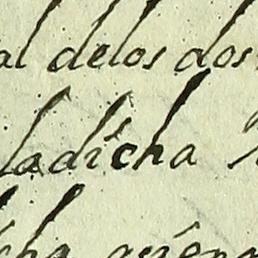 al delos dos
ladicha
cha quien